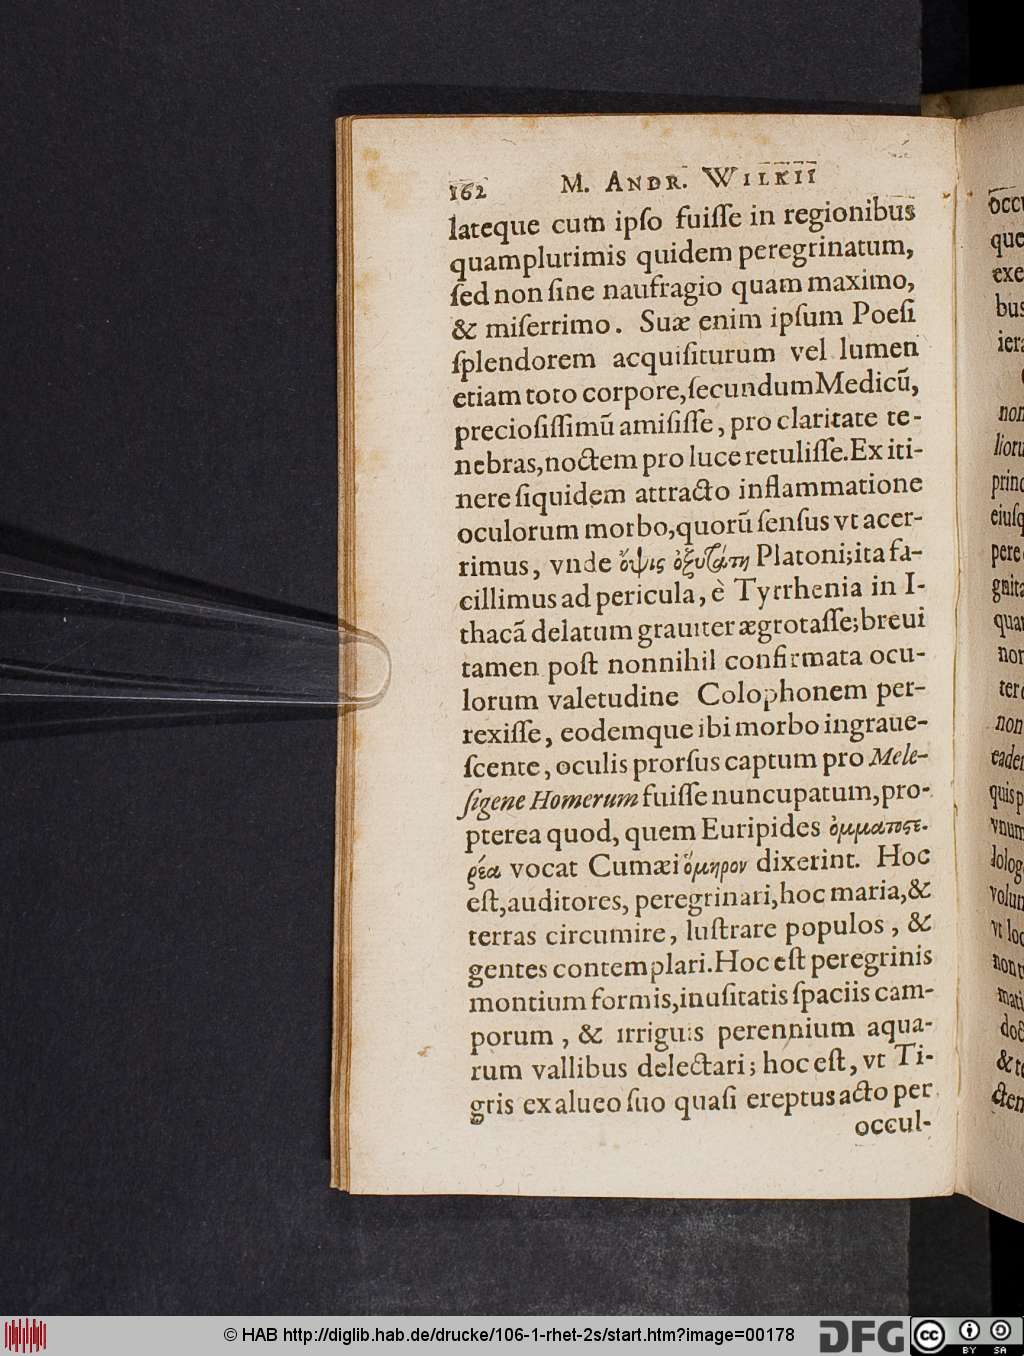 162 M. ANDR. WILKII
lateque cum ipſo fuiſſe in regionibus
quamplurimis quidem peregrinatum,
ſed non ſine naufragio quam maximo,
& miſerrimo. Suæ enim ipſum Poeſi
ſplendorem acquiſiturum vel lumen
etiam toto corpore, ſecundum Medicũ,
precioſiſſimũ amiſiſſe, pro claritate te-
nebras, noctem pro luce retuliſſe. Ex iti-
nere ſiquidem attracto inflammatione
oculorum morbo, quorũ ſenſus vt acer-
rimus, vnde ὄψις ὀξυτάτη Platoni; ita fa-
cillimus ad pericula, è Tyrrhenia in I-
thacã delatum grauiter ægrotaſſe; breui
tamen poſt nonnihil confirmata ocu-
lorum valetudine Colophonem per-
rexiſſe, eodemque ibi morbo ingraue-
ſcente, oculis prorſus captum pro Mele-
ſigene Homerum fuiſſe nuncupatum, pro-
pterea quod, quem Euripides ὀμματοστε-
ρέα vocat Cumæi ὅμηρον dixerint. Hoc
eſt, auditores, peregrinari, hoc maria, &
terras circumire, luſtrare populos, &
gentes contemplari. Hoc eſt peregrinis
montium formis, inuſitatis ſpaciis cam-
porum, & irriguis perennium aqua-
rum vallibus delectari; hoc eſt, vt Ti-
gris ex alueo ſuo quaſi ereptus acto per
occul-
© HAB http://diglib.hab.de/drucke/106-1-rhet-2s/start.htm?image=00178
DFG
cc BY SA